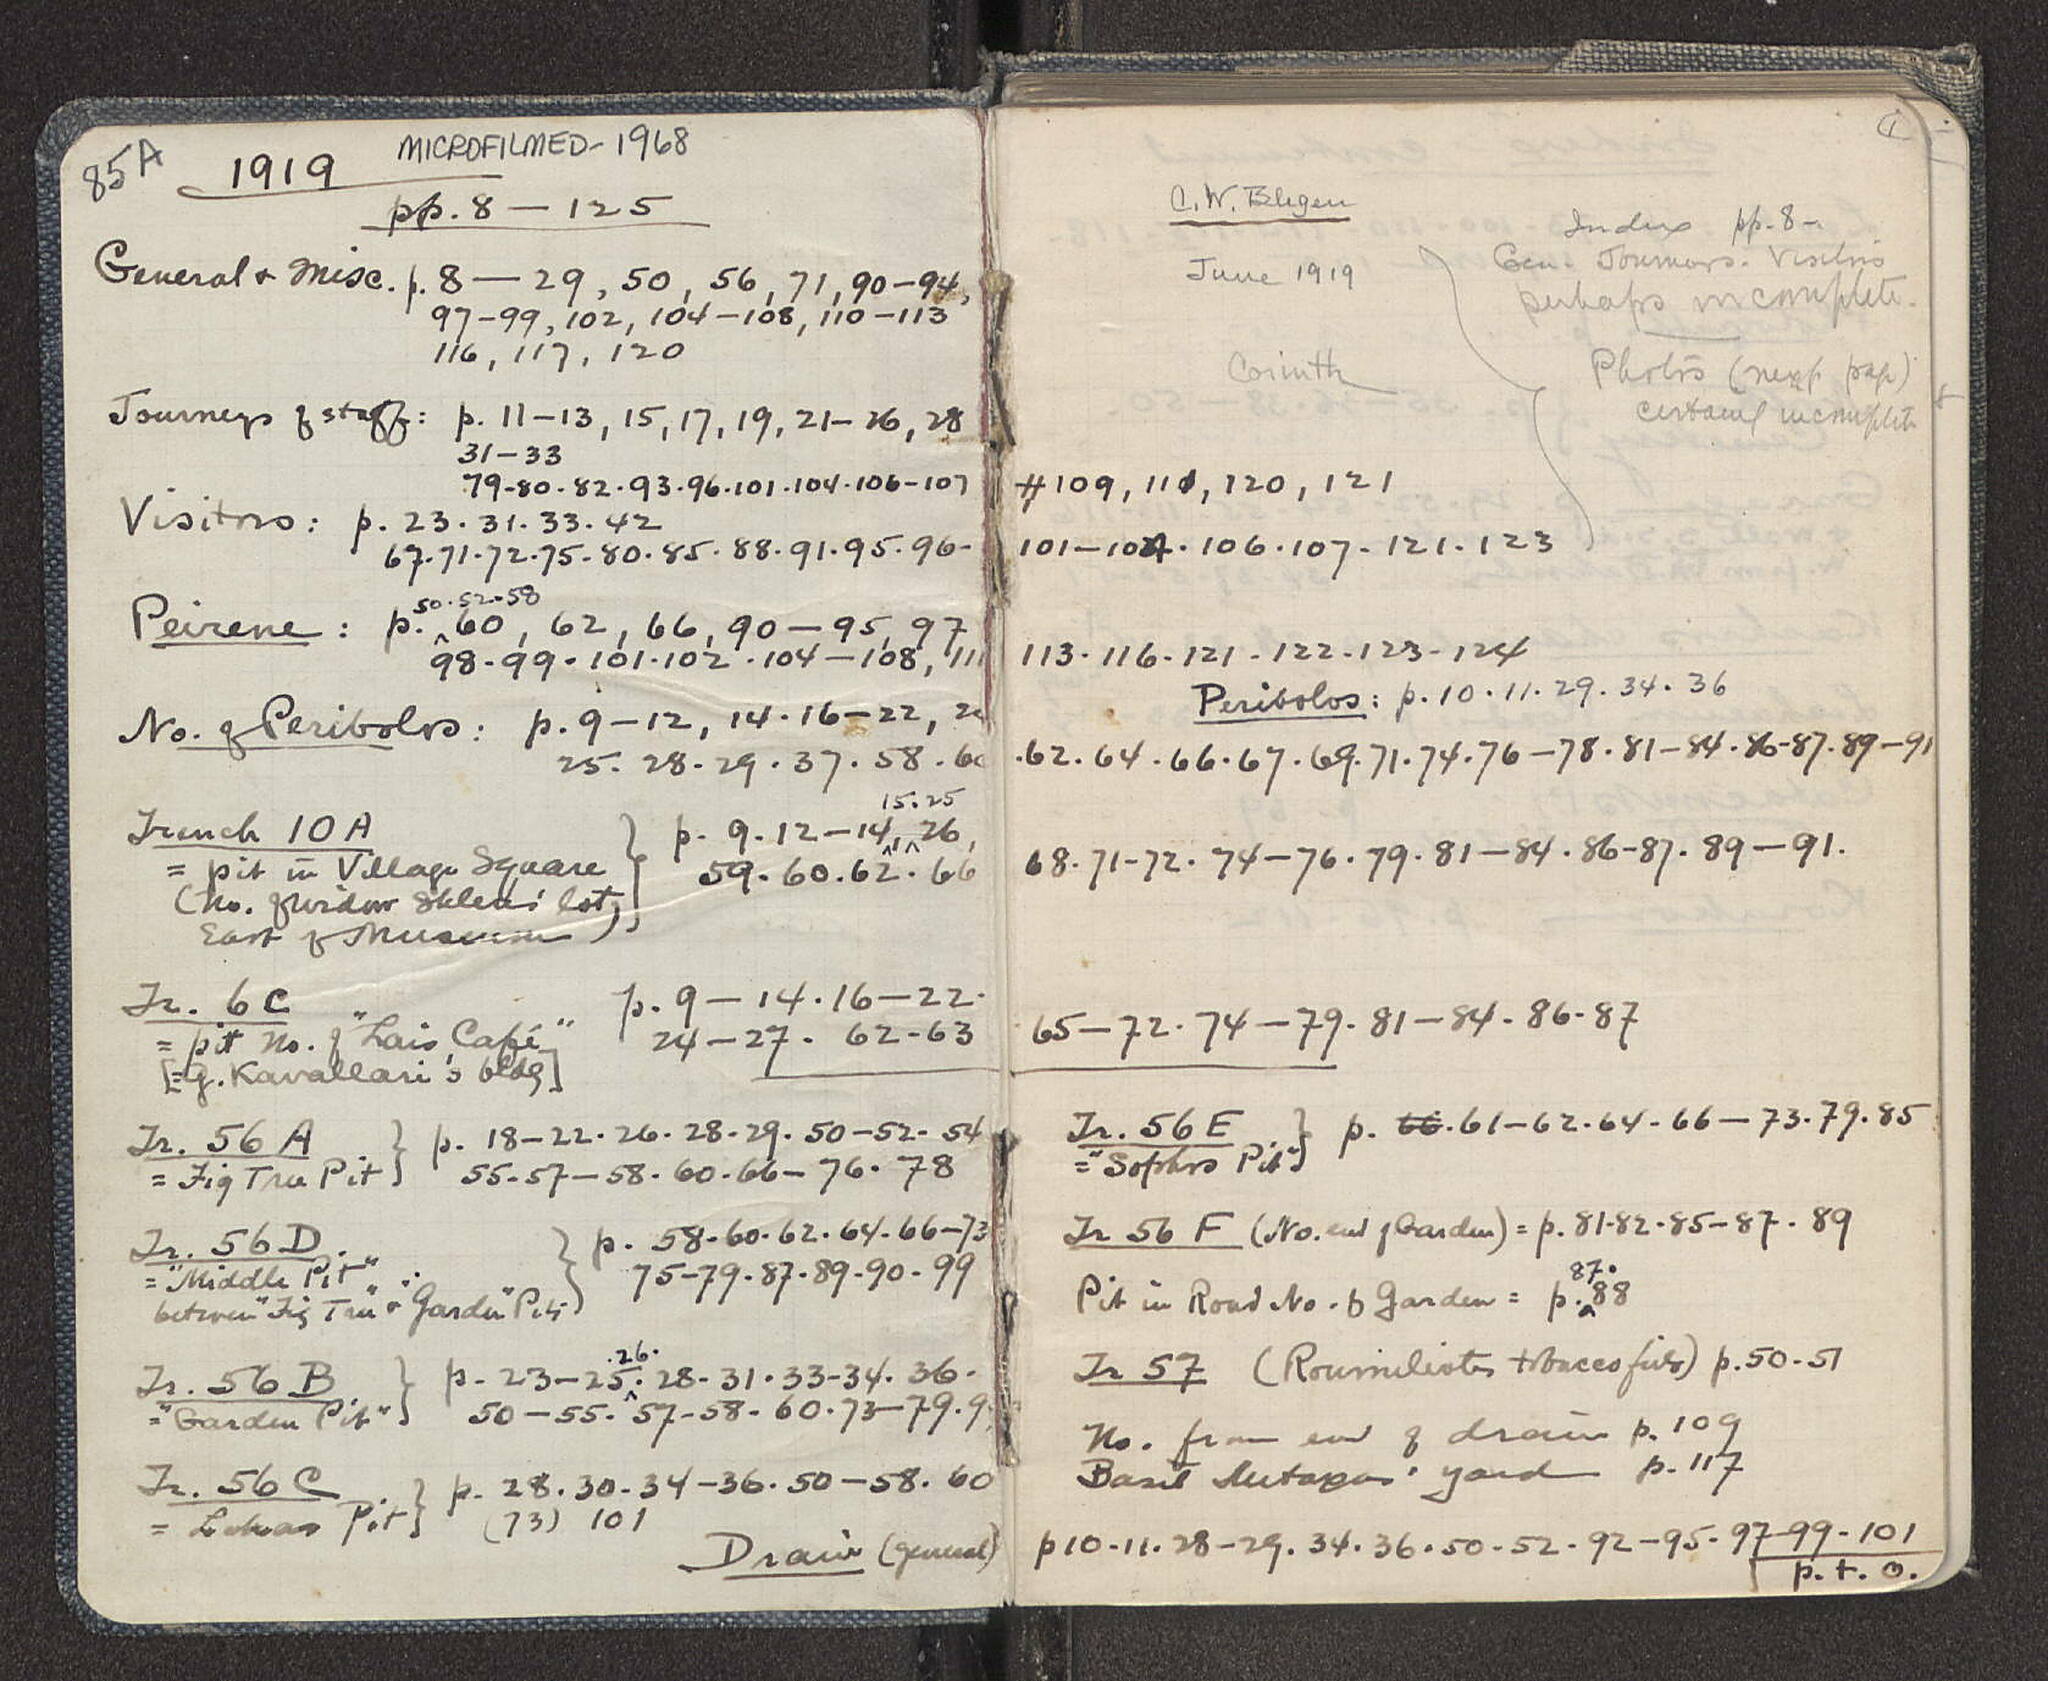 85A
1919
MICROFILMED - 1968
pp. 8 — 125
General & Misc. p. 8 — 29, 50, 56, 71, 90-94,
97-99, 102, 104-108, 110-113
116, 117, 120
Journeys of staff: p. 11-13, 15, 17, 19, 21-26, 28
31-33
79-80-82-93-96-101-104-106-107
Visitors: p. 23. 31. 33. 42
67.71.72.75-80.85.88.91.95.96-
50.52-58
Peirene: p. ^60, 62, 66, 90-95, 97
98-99-101.102.104-108, 111
No. of Peribolos: p. 9-12, 14.16-22,
25. 28-29.37.58.60
15.25
Trench 10A p. 9.12-14, 26,
= pit in Village Square 59.60.62.66
(No. of widow lot,
East of Museum)
Tr. 6C p. 9-14.16-22.
= pit No. of "Lais Café" 24-27. 62-63
[=G. Kavallari's bldg]
Tr. 56 A p. 18-22.26.28-29.50-52-54
= Fig Tree Pit 55-57-58.60.66-76.78
Tr. 56 D. p. 58-60.62.64.66-73
= "Middle Pit" 75-79.87.89-90-99
between "Fig Tree" & "Garden" Pits
.26.
Tr. 56 B p. 23-25^. 28-31.33-34.36.
= "Garden Pit" 50-55.57-58-60.73-79.9
Tr. 56 C p. 28.30-34-36.50-58.60
= Lekas Pit (73) 101
Drain (general)
1
C. W. Blegen
June 1919
Corinth
Index pp. 8-
Gen. Journeys. Visitors
perhaps incomplete.
Photos (next page)
certainly incomplete
#109, 111, 120, 121
101-104.106.107-121.123
113.116.121-122-123-124
Peribolos: p. 10.11.29.34.36
.62.64.66.67.69.71.74.76-78.81-84.86-87.89-91
68.71-72.74-76.79.81-84.86-87.89-91.
65-72.74-79.81-84.86-87
Tr. 56 E p. 66.61-62.64-66-73.79.85
= "Sophos Pit"
Tr 56 F (No. end of Garden) = p. 81-82.85-87.89
87.
Pit in Road No. of Garden = p. ^88
Tr 57 (Roumeliotes tobacco field) p. 50-51
No. from end of drain p. 109
Basil yard p. 117
p 10-11.28-29.34.36.50-52.92-95-97-99-101
p. t. o.